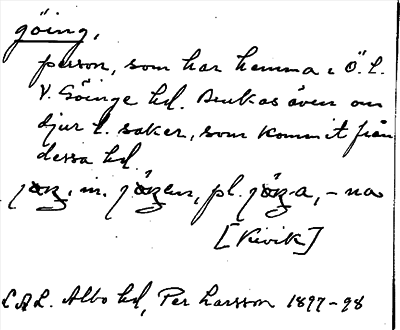 göing,
person, som har hemma i Ö. l.
V. Göinge hd. Brukas även om
djur l. saker, som kommit från
dessa hd.
m. pl. - na
[Kivik]
L.A.L. Albo hd, Per Larsson 1897-98